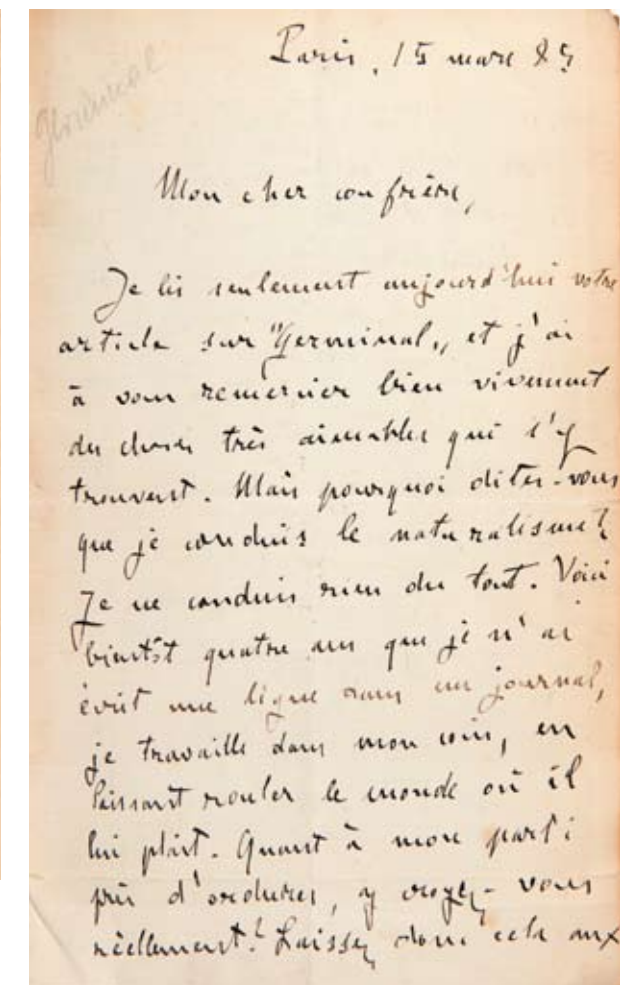 Germinal
Paris, 15 mars 85
Mon cher confrère,
Je lis seulement aujourd'hui votre
article sur "Germinal", et j'ai
à vous remercier bien vivement
des choses très aimables qui s'y
trouvent. Mais pourquoi dites-vous
que je conduis le naturalisme?
Je ne conduis rien du tout. Voici
bientôt quatre ans que je n'ai
écrit une ligne dans un journal,
je travaille dans mon coin, en
laissant rouler le monde où il
lui plaît. Quant à mon parti
pris d'ordures, y croyez-vous
réellement? Laissez donc cela aux